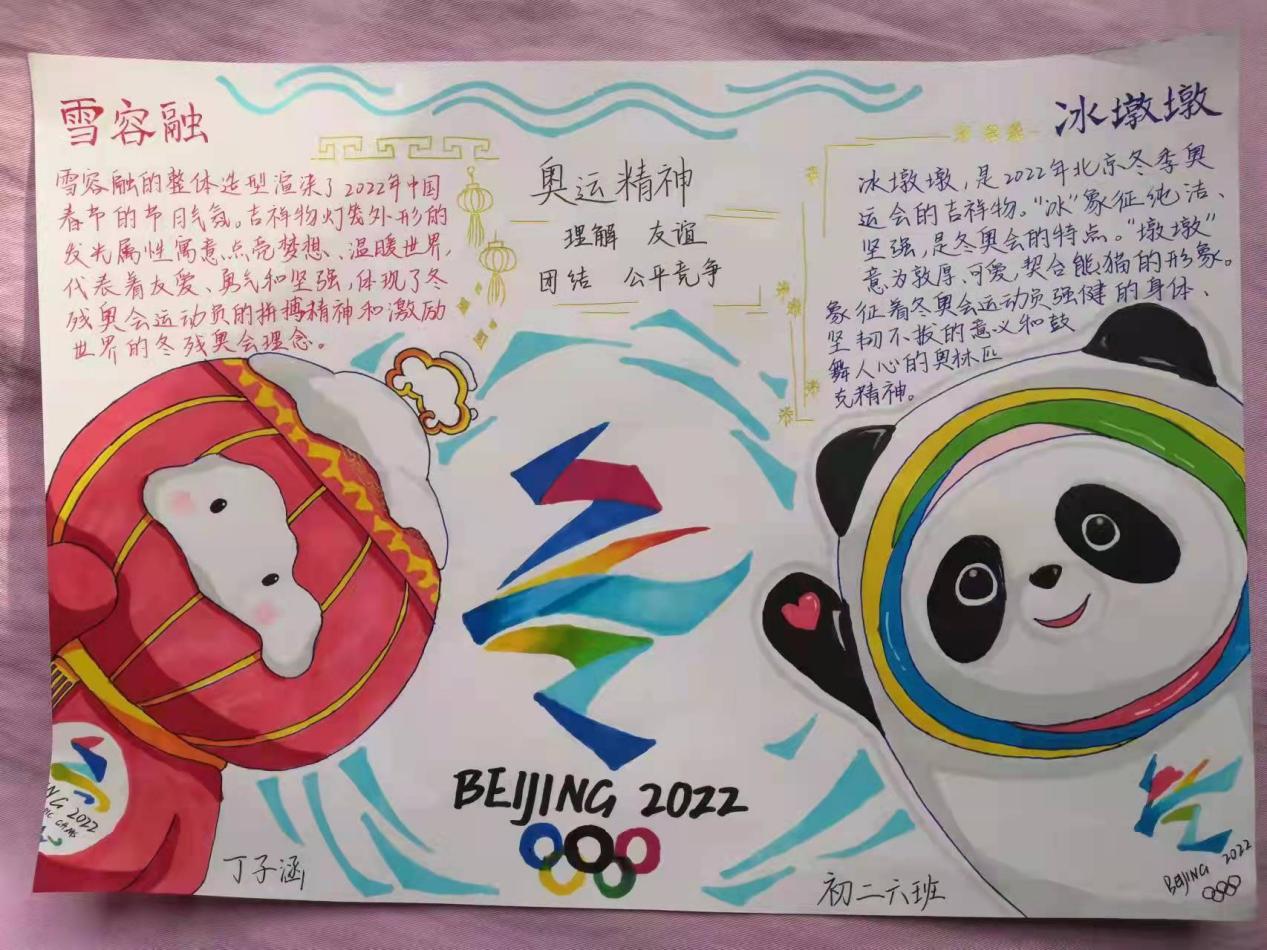 雪容融
雪容融的整体造型渲染了2022年中国
春节的节日气氛。吉祥物灯笼外形的
发光属性寓意点亮梦想、温暖世界,
代表着友爱、勇气和坚强,体现了冬
残奥会运动员的拼搏精神和激励
世界的冬残奥会理念。
奥运精神
理解 友谊
团结 公平竞争
冰墩墩
冰墩墩,是2022年北京冬季奥
运会的吉祥物。“冰”象征纯洁、
坚强,是冬奥会的特点。“墩墩”
意为敦厚、可爱,契合熊猫的形象。
象征着冬奥会运动员强健的身体、
坚韧不拔的意义和鼓
舞人心的奥林匹
克精神。
BEIJING 2022
NG 2022
丁子涵
初二六班
BEIJING 2022